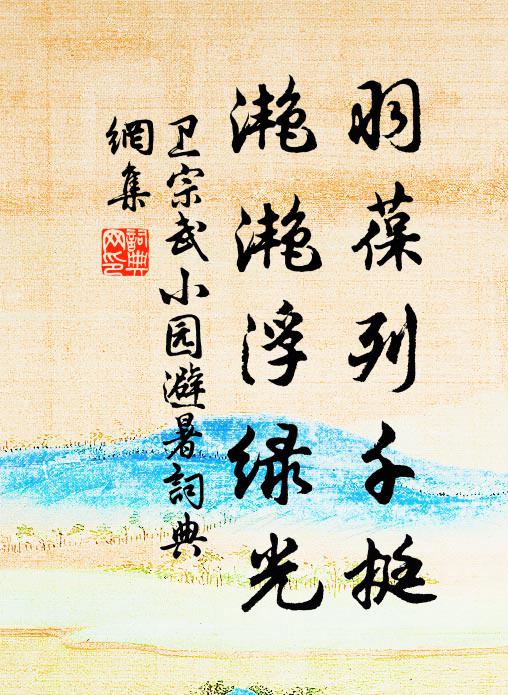 羽葆列千挺
滟滟浮绿光
卫宗武小园避暑詞典
網集
詞典网印